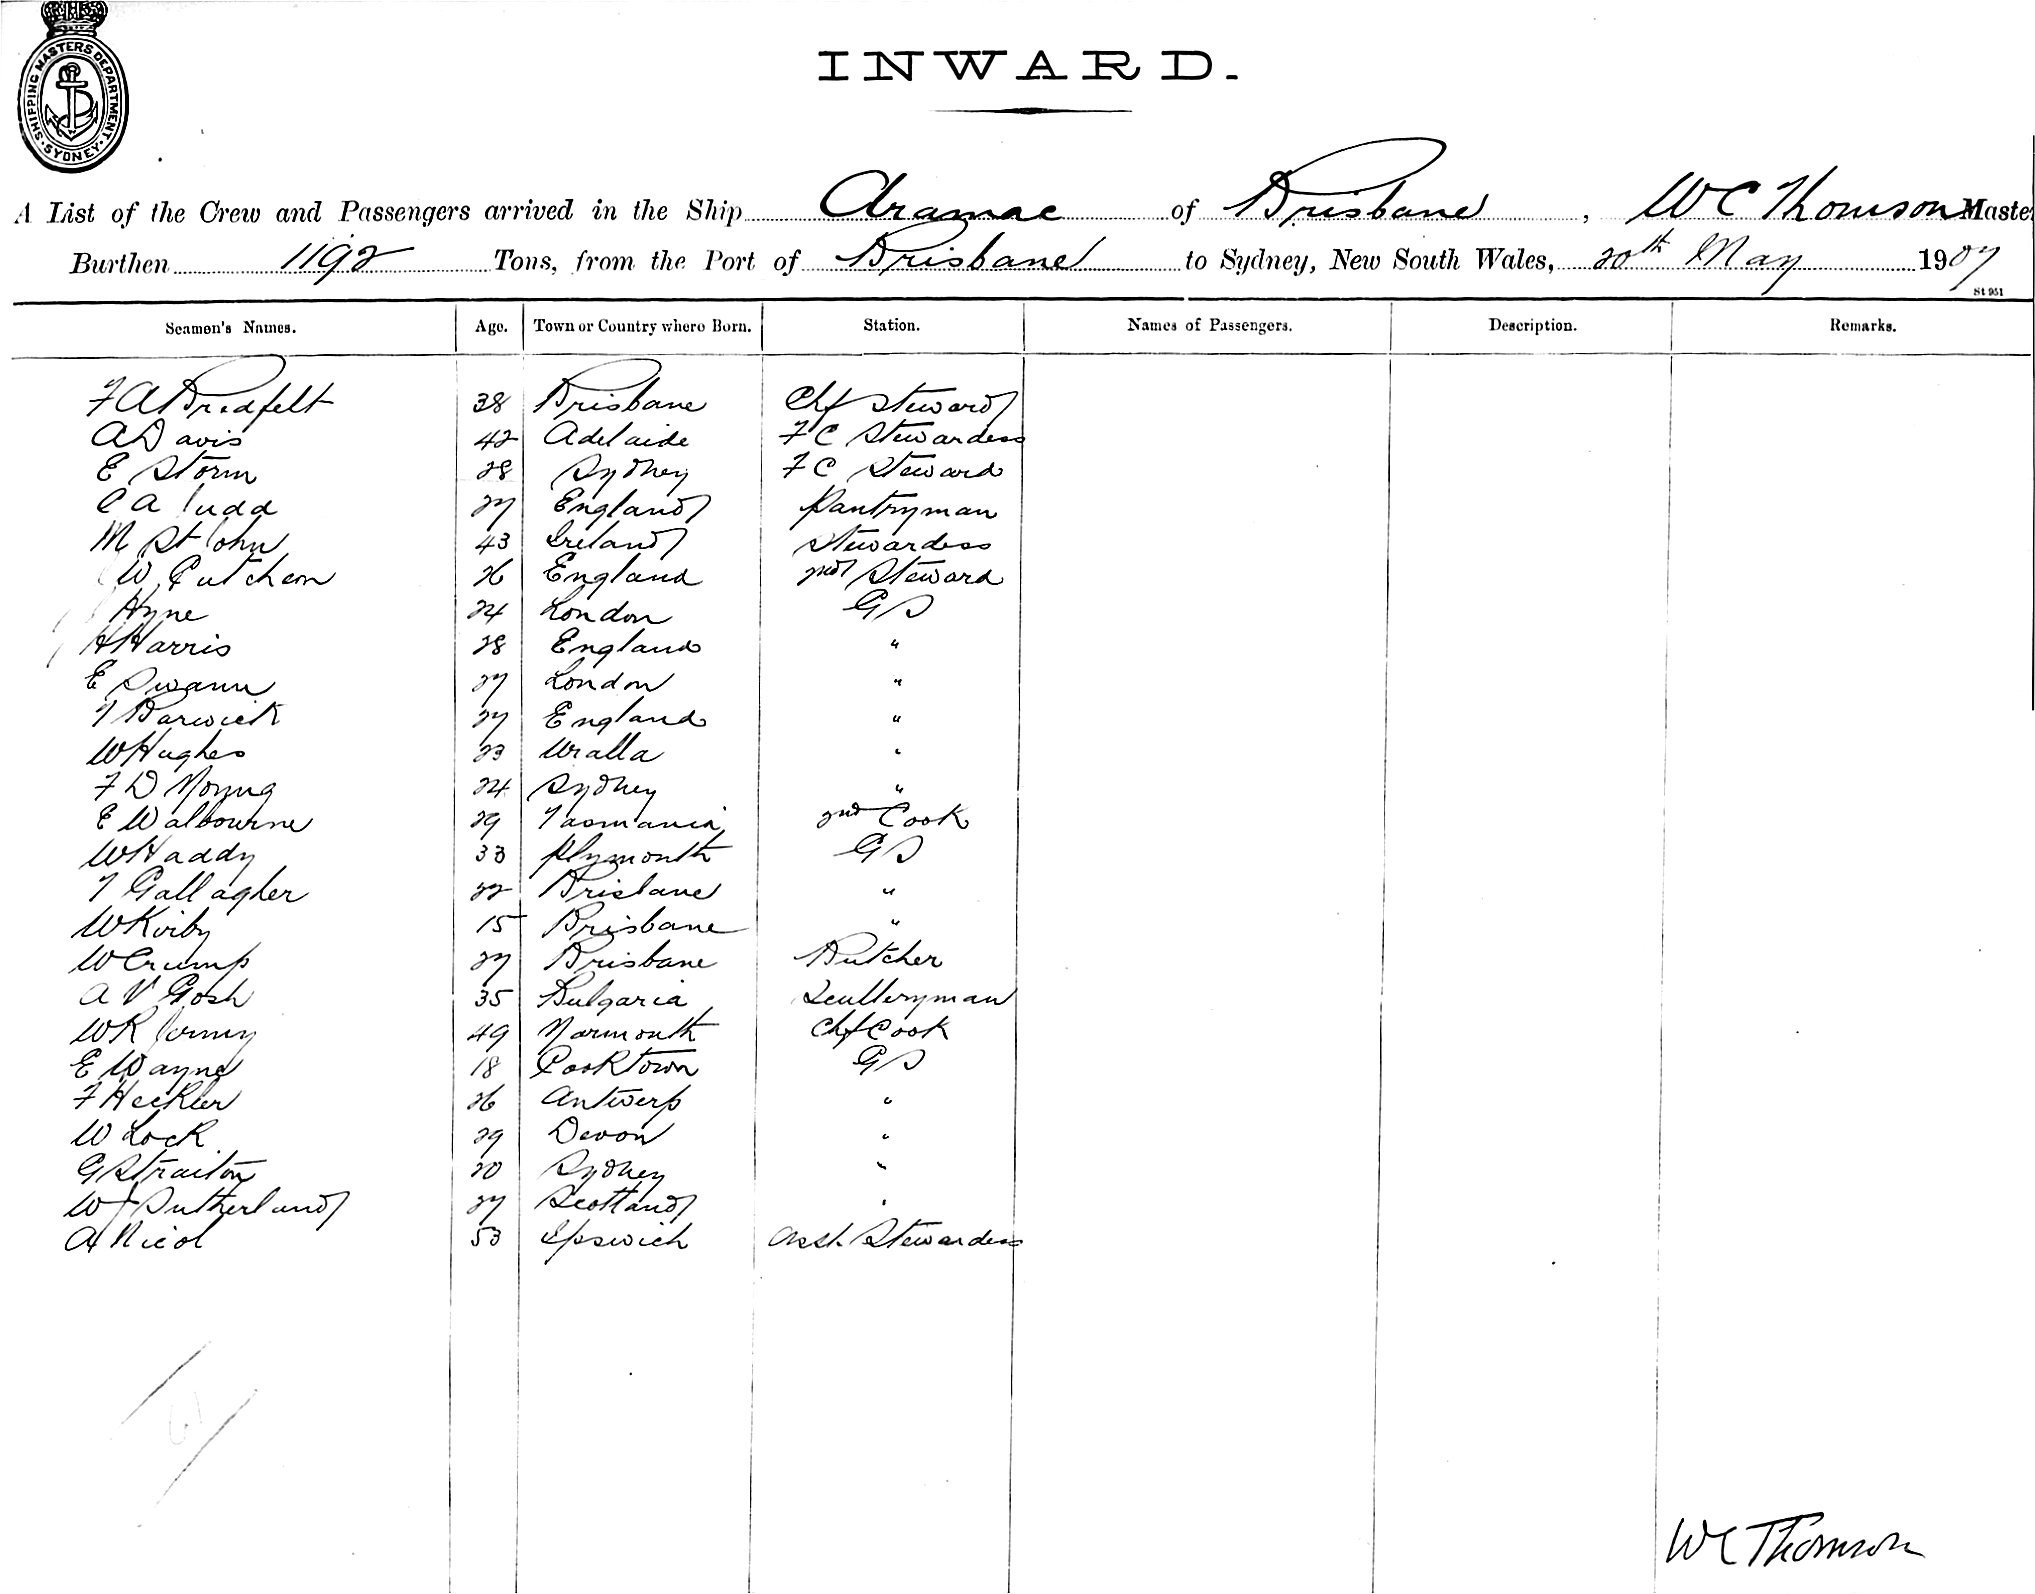 SHIPPING MASTERS DEPARTMENT · SYDNEY ·
INWARD.
A List of the Crew and Passengers arrived in the Ship Aramac of Brisbane, W C Thomson Master
Burthen 1192 Tons, from the Port of Brisbane to Sydney, New South Wales, 20th May 1907
St 951
Seamen's Names. Age. Town or Country where Born. Station. Names of Passengers. Description. Remarks.
F A Bredfelt 38 Brisbane Chf Steward
A Davis 42 Adelaide F C Stewardess
E Storm 28 Sydney F C Steward
C A Judd 27 England Pantryman
M St John 43 Ireland Stewardess
W 26 England 2nd Steward
Hyne 24 London G S
H Harris 28 England "
E Swann 27 London "
T Barwick 27 England "
W Hughes 23 Uralla "
F D Young 24 Sydney "
E Walbourne 29 Tasmania 2nd Cook
W Haddy 33 Plymouth G S
T Gallagher 22 Brisbane "
W Kirby 15 Brisbane "
W Crump 27 Brisbane Butcher
A V Gosh 35 Bulgaria Sculleryman
W R 49 Yarmouth Chf Cook
E Wayne 18 Cooktown G S
F Heckler 26 Antwerp "
W Lock 29 Devon "
G Straiton 20 Sydney "
W J Sutherland 27 Scotland "
A Nicol 53 Ipswich Asst. Stewardess
W C Thomson